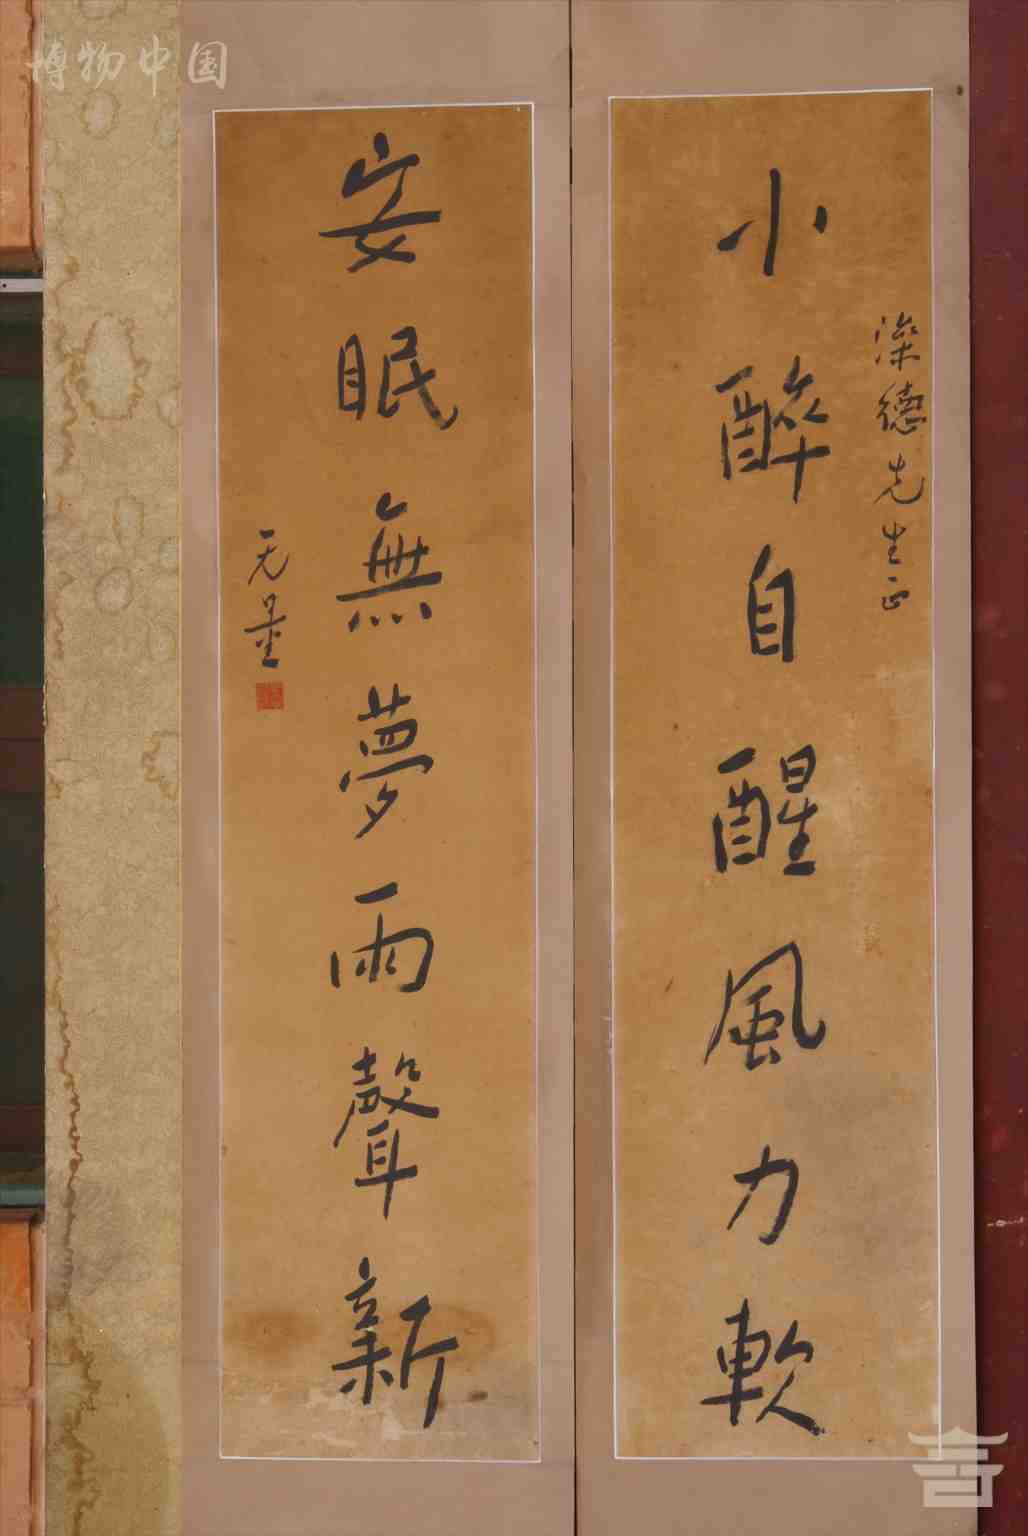 博物中国
德先生正
小醉自醒風力軟
安眠無夢雨聲新
无量